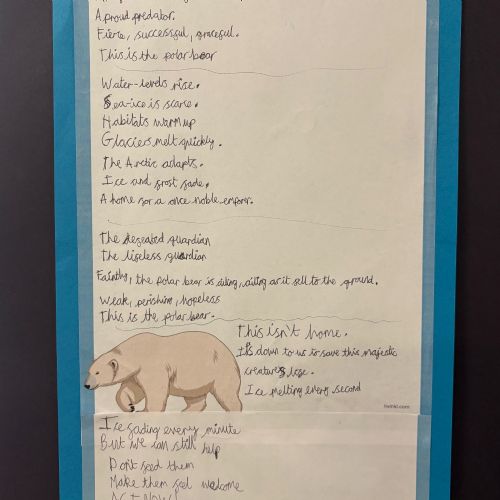 A proud predator.
Fierce, successful, graceful.
This is the polar bear
Water-levels rise.
Sea-ice is scarse.
Habitats warm up
Glaciers melt quickly.
The Arctic adapts.
Ice and frost fade.
A home for a once noble emperor.
The defeated guardian
The lifeless guardian
Faintly, the polar bear is ailing, as it fell to the ground.
Weak, perishing, hopeless
This is the polar bear.
This isn't home.
It's down to us to save this majestic
creatures life.
Ice melting every second
twinkl.com
Ice fading every minute
But we can still help
Don't feed them
Make them feel welcome
Act Now!